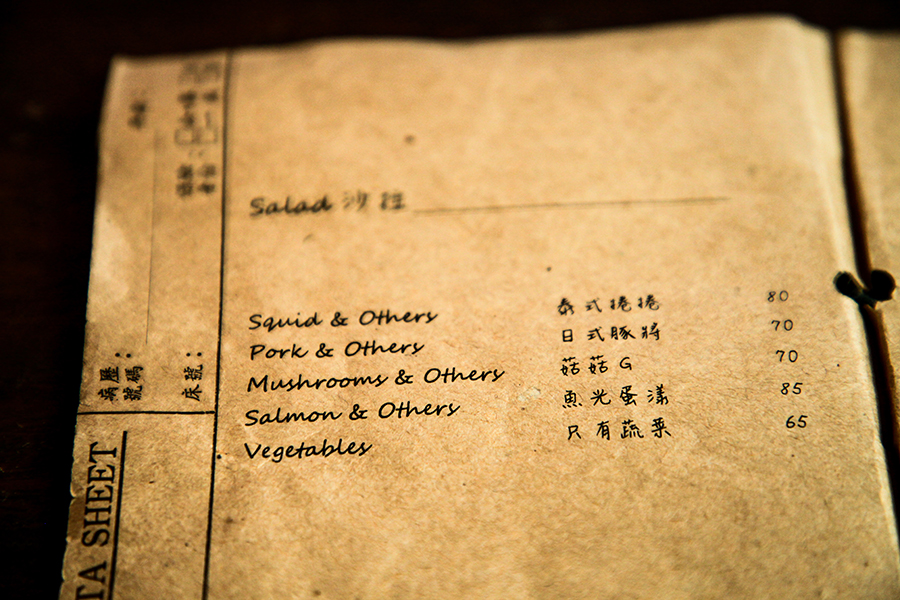 Salad 沙拉
Squid & Others 泰式捲捲 80
Pork & Others 日式豚將 70
Mushrooms & Others 菇菇G 70
Salmon & Others 魚光蛋漾 85
Vegetables 只有蔬菜 65
病歷號碼：
床號：
TA SHEET